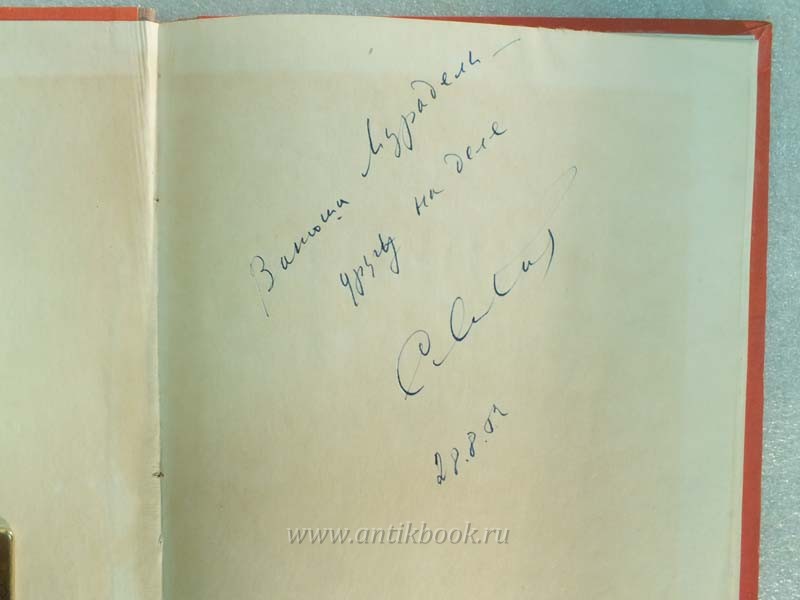 Ванюша Мурадели —
другу на деле
28.8.
www.antikbook.ru